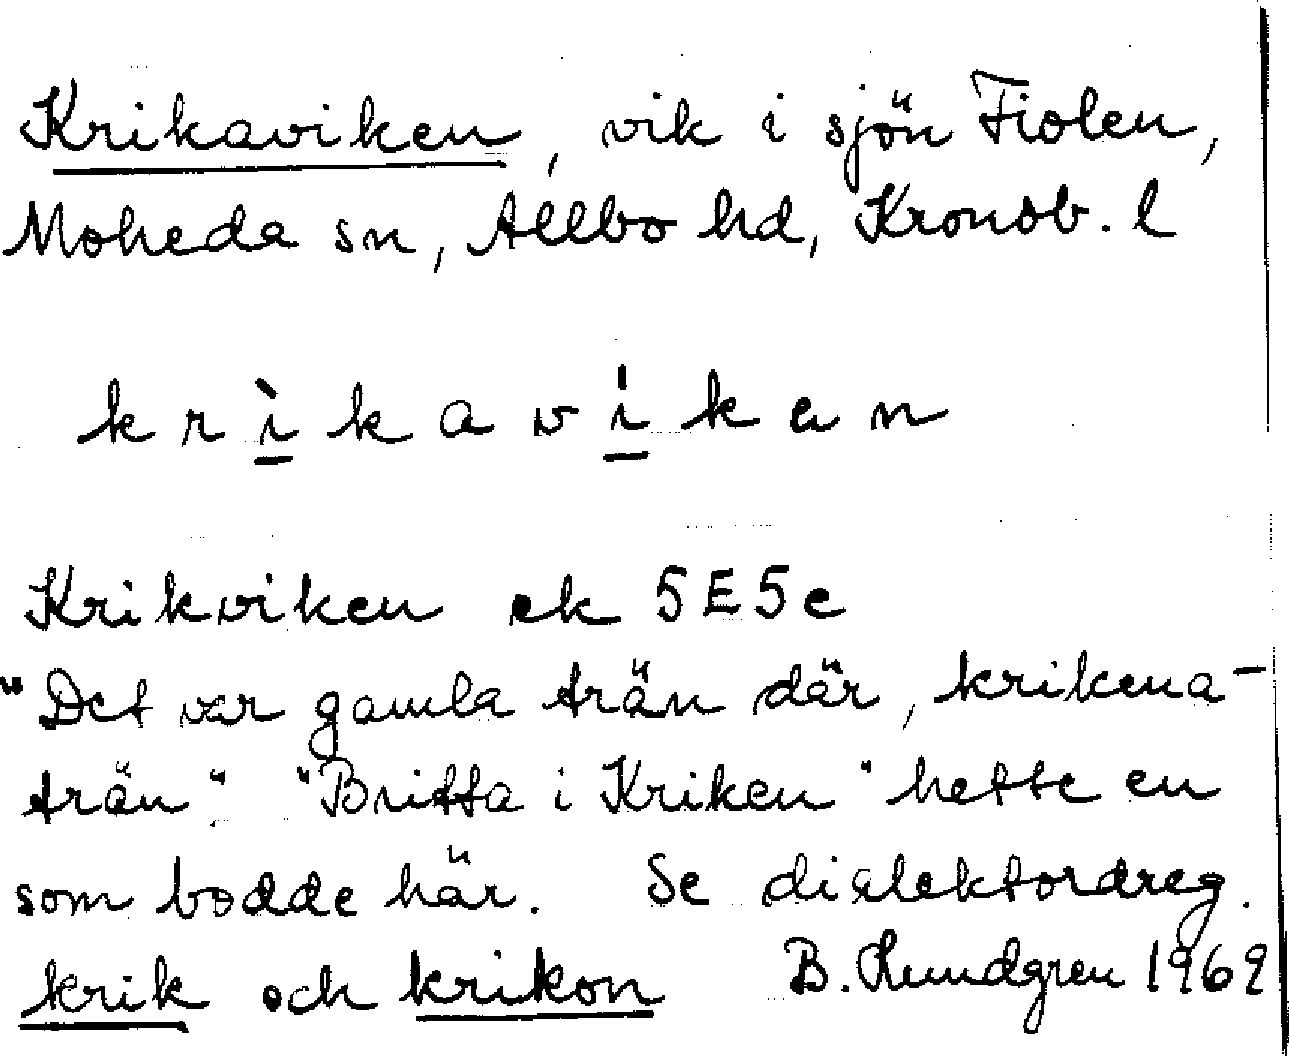 Krikaviken, vik i sjön Fiolen,
Moheda sn, Allbo hd, Kronob. l
k r ì k a v í k a n
Krikviken ek 5E5c
"Det var gamla trän där, krikena-
trän". "Britta i Kriken" hette en
som bodde här. Se dialektordreg.
krik och krikon B. Lundgren 1969